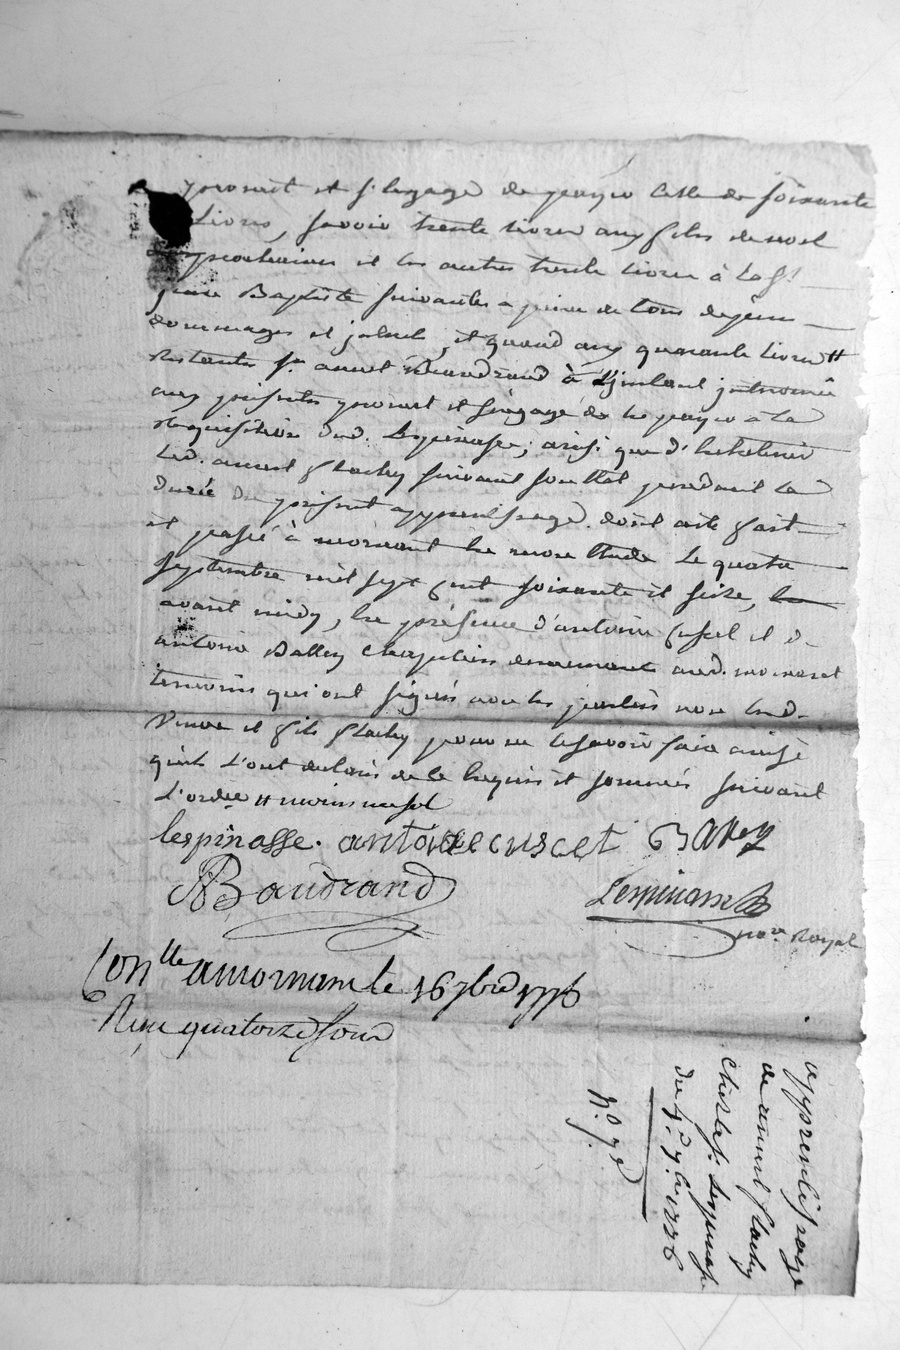 promet et s'engage de payer celle de soixante
Livres, savoir trente livres aux fêtes de noel
prochaines et les autres trente livres à la st
jean Baptiste suivantes a peine de tous dépens
dommages et intherets, et quand aux quarante livres
restants sr. amet Baudrand à
aux presentes promet et s'engage de les payer à la
requisition dud. Lespinasse, ainsi que d'
led. amet flachy suivant son état pendant la
durée du présent apprentissage. dont acte fait
et passé à mornant en notre Etude le quatre
septembre mil sept cent soixante et seize,
avant midy, en présence d'antoine Cuset et d'
antoine Balley demeurant aud. mornant
temoins qui ont signés avec les parties non lad.
veuve et fils flachy pour ne le savoir faire ainsi
qu'ils l'ont declaré de ce enquis et sommés suivant
L'ordce
lespinasse. antoine cuscet Balley
Baudrand Lespinasse
nore Royal
Conlle a mornant le 16 7bre 1776
Reçu quatorze sous
apprentissage
de amet flachy
chez le sr. Lespinasse
du 4e 7bre 1776
n° 78